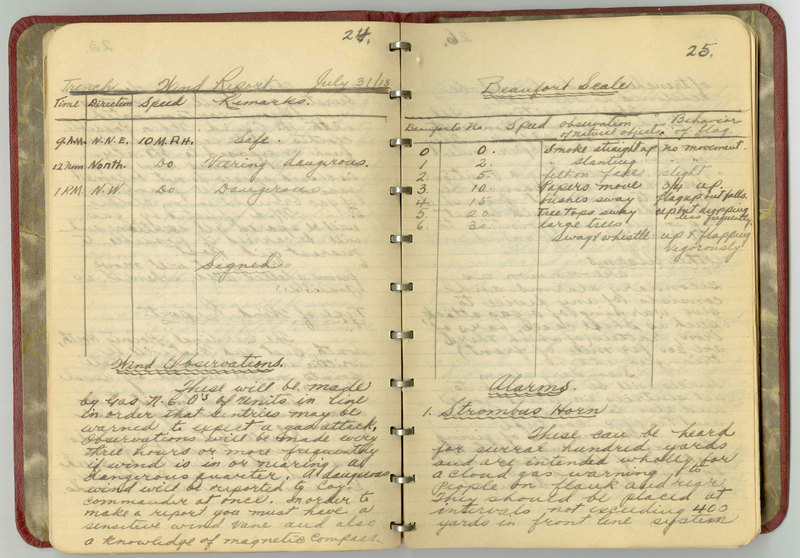 24.
Trench Wind Report. July 31/18
Time Direction Speed Remarks.
9 A.M. N.N.E. 10 M.P.H. Safe.
12 Noon North. Do Veering dangerous.
1 P.M. N.W. Do Dangerous
Signed
Wind Observations.
These will be made
by Gas N.C.O's of units in line
in order that sentries may be
warned to expect a gas attack,
observations will be made every
three hours or more frequently
if wind is in or nearing a
dangerous quarter. A dangerous
wind will reported to Coy.
commander at once. In order to
make a report you must have a
sensitive wind vane and also
a knowledge of magnetic compass
25.
Beaufort Scale
Beaufort's No. Speed observation of natural objects. Behavior of flag
0 0. Smoke straight up no movement.
1 2. " slanting " "
2. 5 felt on face slight
3. 10. Papers move 3/4 up.
4. 15. bushes sway flag up but falls.
5. 20 tree tops sway up but dropping less frequently
6. 30. large trees
sway & whistle up & flapping
vigorously
Alarms.
1. Strombus Horn
These can be heard
for sevral hundred yards
and are intended wholly for
a cloud gas warning to
people on flank and rear
They should be placed at
intervals not exceding 400
yards in front line system